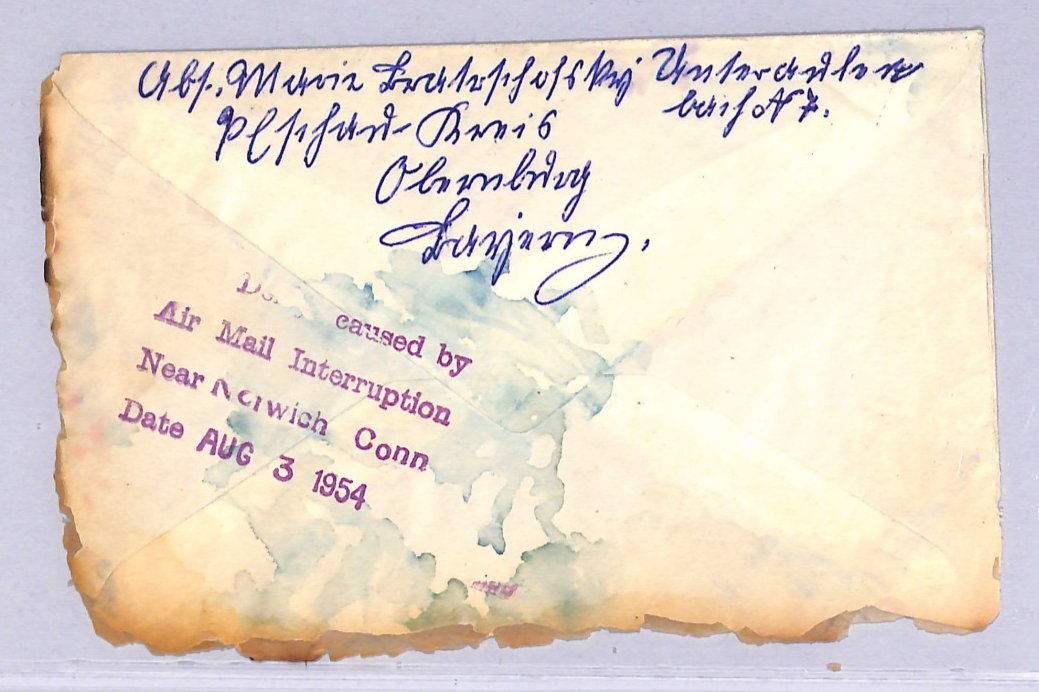 Abs. Marie Unteraulen
bach N 7.
P Eschau-Kreis
Obernburg
Bayern.
caused by
Air Mail Interruption
Near Norwich Conn
Date AUG 3 1954